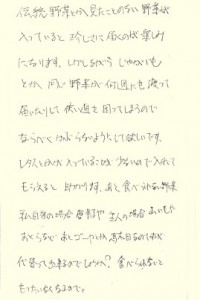 伝統野菜とか見たことのない野菜が
入っていると珍しさに届くのが楽しみ
になります。しかしながらじゃがいも
とか、同じ野菜が何週にも渡って
届いたりして使い道を困ってしまうので
ならべくかぶらないようにして欲しいです。
レタスとかが入っていることが少ないので入れて
もらえると助かります。あと食べられない野菜
私自身の場合唐辛子や主人の場合
あとゴーヤとか
代替って出来るのでしょうか?食べられないと
もったいなくなるので。